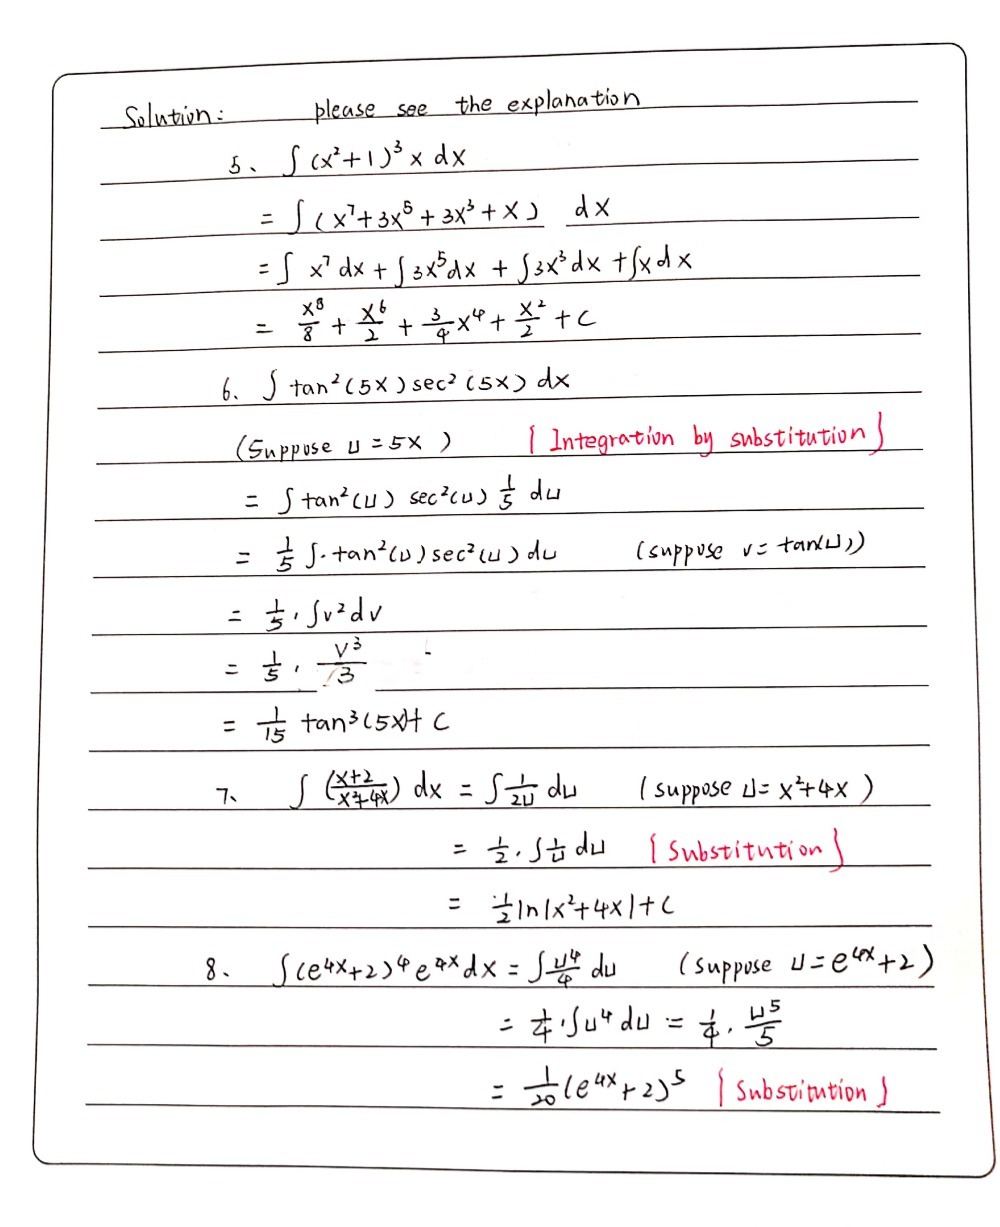 Solution: please see the explanation
5、 ∫(x²+1)³ x dx
= ∫(x⁷+3x⁵+3x³+x) dx
= ∫ x⁷ dx + ∫3x⁵dx + ∫3x³dx + ∫x dx
= x⁸/8 + x⁶/2 + 3/4 x⁴ + x²/2 + C
6、 ∫ tan²(5x) sec²(5x) dx
(Suppose u = 5x) {Integration by substitution}
= ∫ tan²(u) sec²(u) 1/5 du
= 1/5 ∫·tan²(u) sec²(u) du (suppose v = tan(u))
= 1/5 · ∫v² dv
= 1/5 · v³/3
= 1/15 tan³(5x)+ C
7、 ∫ (x+2/x²+4x) dx = ∫ 1/2u du (suppose u = x²+4x)
= 1/2 · ∫ 1/u du {Substitution}
= 1/2 ln|x²+4x|+C
8、 ∫(e⁴ˣ+2)⁴ e⁴ˣ dx = ∫ u⁴/4 du (suppose u = e⁴ˣ+2)
= 1/4 · ∫u⁴ du = 1/4 · u⁵/5
= 1/20 (e⁴ˣ+2)⁵ {Substitution}